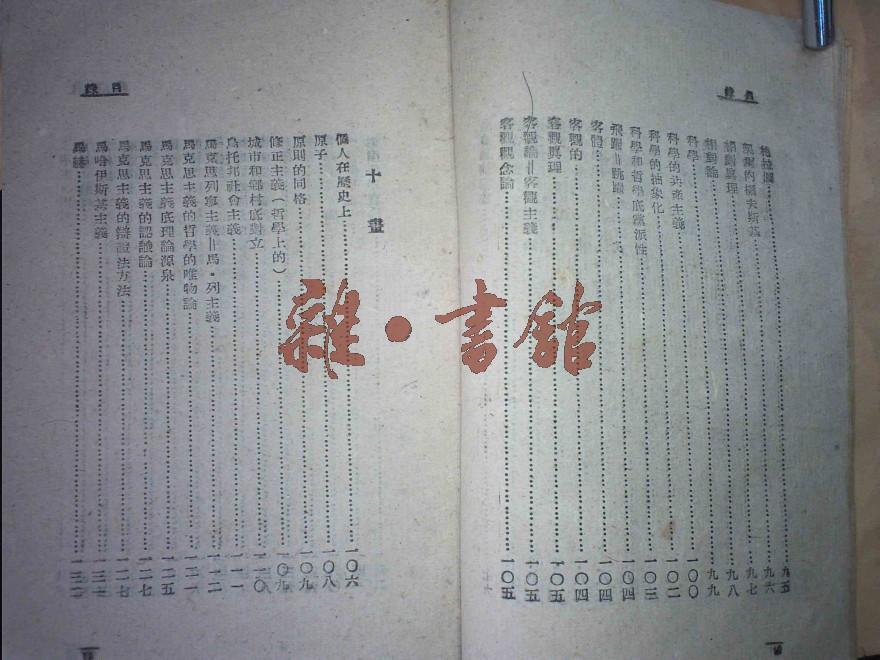 目錄
柏拉圖……九五
相對真理……九八
相對論……九九
科學……一〇〇
科學的共產主義……一〇二
科學的抽象化……一〇三
科學和哲學底黨派性……一〇四
飛躍=跳躍……一〇四
客體……一〇四
客觀的……一〇五
客觀真理……一〇五
客觀論=客觀主義……一〇五
客觀觀念論……一〇五
目錄
十畫
個人在歷史上……一〇六
原子……一〇八
原則的同格……一〇九
修正主義(哲學上的)……一〇九
城市和鄉村底對立……一一〇
烏托邦社會主義……一一一
馬克思列寧主義=馬·列主義……一一二
馬克思主義的哲學的唯物論……一二一
馬克思主義底理論源泉……一二五
馬克思主義的認識論……一二七
馬克思主義的辯證法方法……一二七
馬哈伊斯基主義
雜·書館